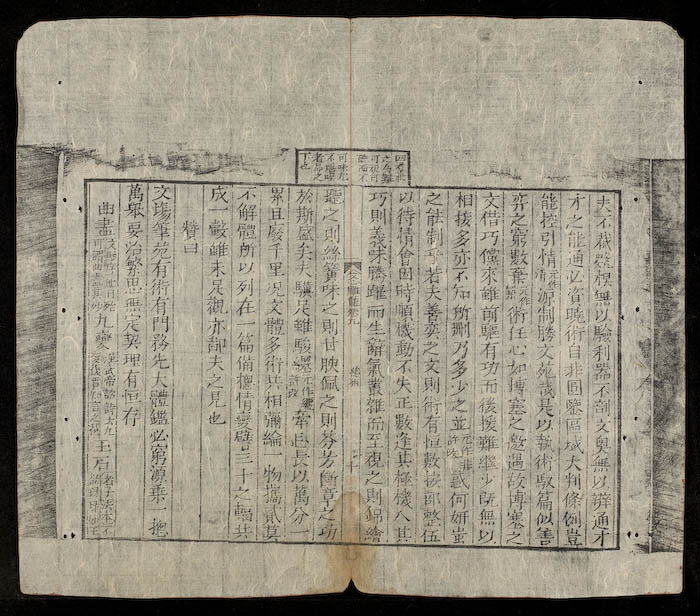 四者兼
之為難
可視可
聽而不
可味尤
者品之
下也
夫不截盤根無以驗利器不剖文奧無以辯通才
才之能通必資曉術自非圓鑒區域大判條例豈
能控引情元作清源制勝文苑哉是以執術馭篇似善
弈之窮數棄術任心如博塞之邀遇故博塞之
文借巧儻來雖前驅有功而後援難繼少既無以
相接多亦不知所刪乃多少之並元作非許改惑何妍蚩
之能制乎若夫善弈之文則術有恒數按部整伍
以待情會因時順機動不失正數逢其極機入其
巧則義味騰躍而生辭氣叢雜而至視之則錦繪
文心雕龍卷九 總術 十
聽之則絲簧味之則甘腴佩之則芬芳斷章之功
於斯盛矣夫驥足雖駿纆牽忌長以萬分一
累且廢千里況文體多術共相彌綸一物攜貳莫
不解體所以列在一篇備總情變譬三十之輻共
成一轂雖未足觀亦鄙夫之見也
贊曰
文場筆苑有術有門務先大體鑑必窮源乘一總
萬舉要治繁思無定契理有恒存
曲盡 九變漢武帝詔詩云九變復貫知言之選 玉石